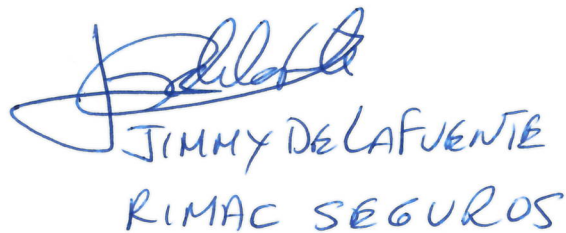 JIMMY DELAFUENTE
RIMAC SEGUROS